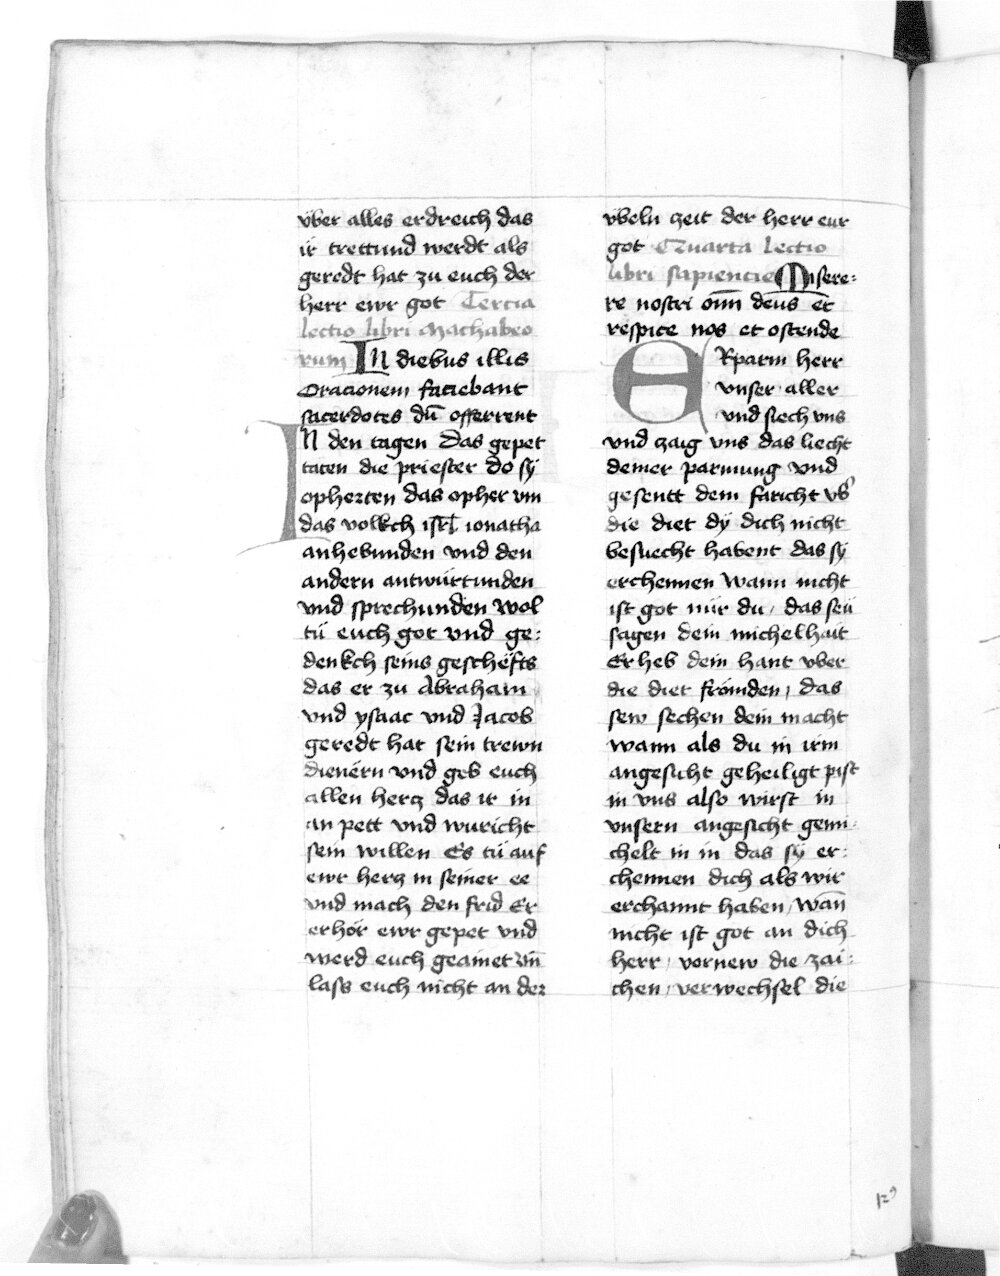 vber alles erdreich das
ir trettund werdt als
geredt hat zu euch der
herr ewr got Tercia
lectio libri Machabeo
rum In diebus illis
Oracionem faciebant
sacerdotes dū offerrent
In den tagen Das gepet
taten die priester do sÿ
opherten das opher vm
das volkch isrl̄ ionatha
anhebunden vnd den
andern antwürtunden
vnd sprechunden Wol
tü euch got vnd ge:
denkch seins geschëfts
das er zu Abraham
vnd ysaac vnd Jacob
geredt hat sein trewn
dienërn vnd geb euch
allen hercz das ir in
an pett vnd wuricht
sein willen Es tü auf
ewr hercz in seiner ee
vnd mach den frid Er
erhör ewr gepet vnd
werd euch geainet vn̄
lass euch nicht an der
vbeln zeit der herr eur
got Quarta lectio
libri sapiencie Misere:
re nostri om̄ deus et
respice nos et ostende
ERparm herr
vnser aller
vnd siech vns
vnd zaig vns das liecht
deiner parmung vnd
gesentt dein faricht vb̾
die diet dÿ dich nicht
besuecht habent das sÿ
erchennen Wann nicht
ist got nür du, das seü
sagen dein michelhait
Er heb dein hant vber
die diet frömden, das
sew sechen dein macht
wann als du in irm
angesicht geheiligt pist
in vns also wirst in
vnsern angesicht gemi:
chelt in in das sÿ er:
chennen dich als wir
erchannt haben, wan̄
nicht ist got an dich
herr, vernew die zai:
chen, verwechsel die
129